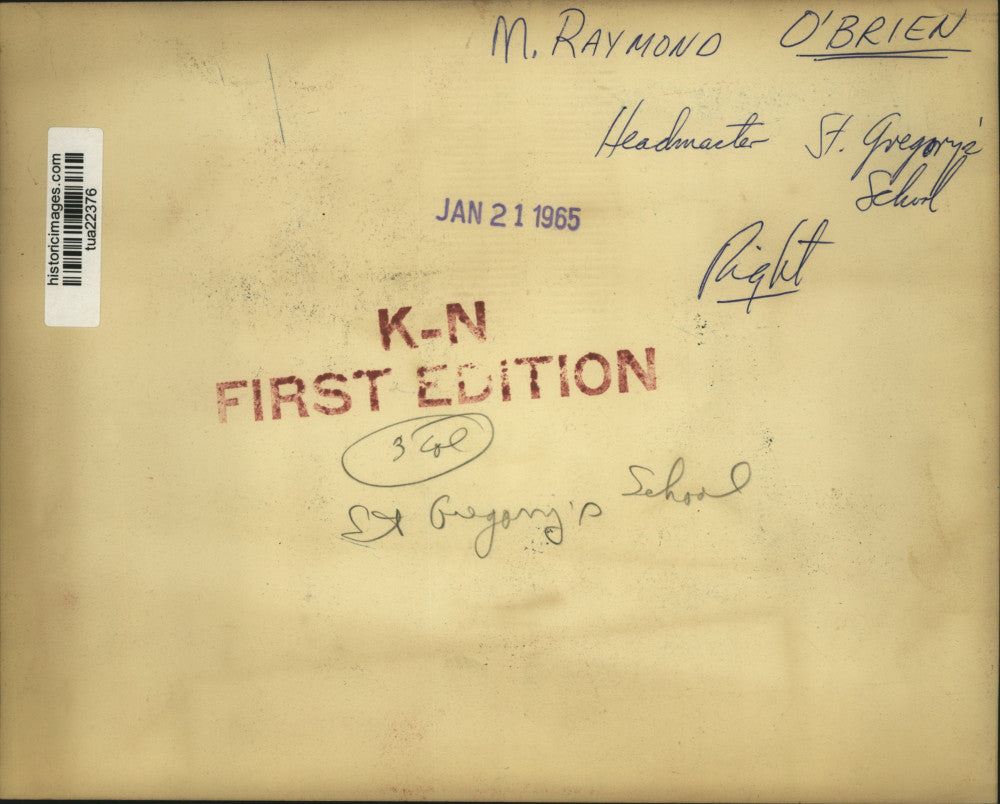 M. RAYMOND O'BRIEN
Headmaster St. Gregory's
School
Right
historicimages.com
tua22376
JAN 21 1965
K-N
FIRST EDITION
3 Col
St Gregory's School